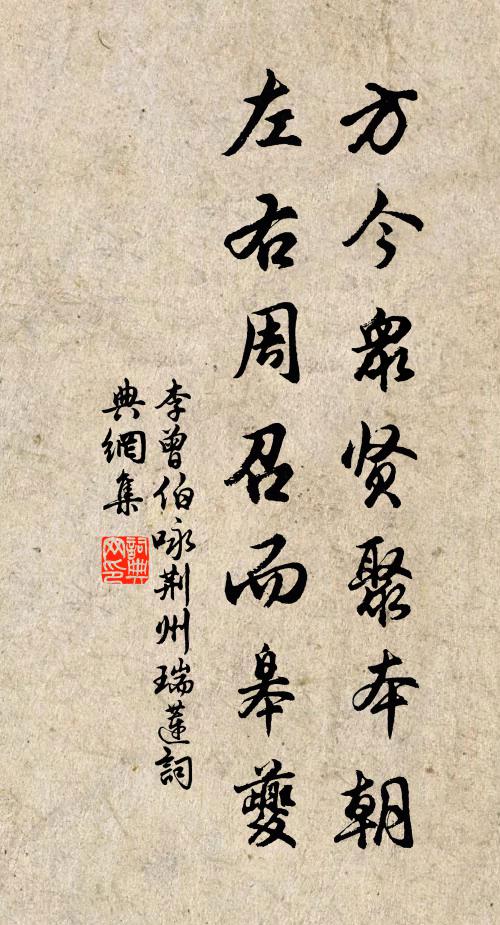 方今衆贤聚本朝
左右周召而皋夔
李曾伯咏荆州瑞莲詞
典網集
詞典網印